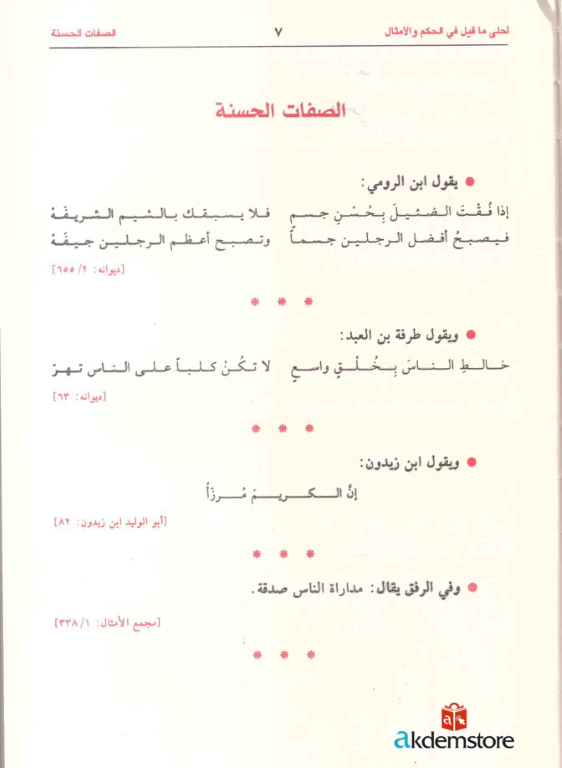 أحلى ما قيل في الحكم والأمثال ٧ الصفات الحسنة
الصفات الحسنة
● يقول ابن الرومي:
إذا فُقْتَ الضئيلَ بِحُسْنِ جسمٍ فلا يسبقك بالشيم الشريفَهْ
فيصبحُ أفضل الرجلين جسماً وتصبح أعظم الرجلين جيفَهْ
[ديوانه: ٢/ ٦٥٥]
* * *
● ويقول طرفة بن العبد:
خالطِ الناسَ بِخُلْقٍ واسعٍ لا تكُنْ كلباً على الناس تهرّ
[ديوانه: ٦٣]
* * *
● ويقول ابن زيدون:
إنَّ الكريمَ مُرزَأُ
[أبو الوليد ابن زيدون: ٨٢]
* * *
● وفي الرفق يقال: مداراة الناس صدقة.
[مجمع الأمثال: ١/ ٣٣٨]
* * *
akdemstore